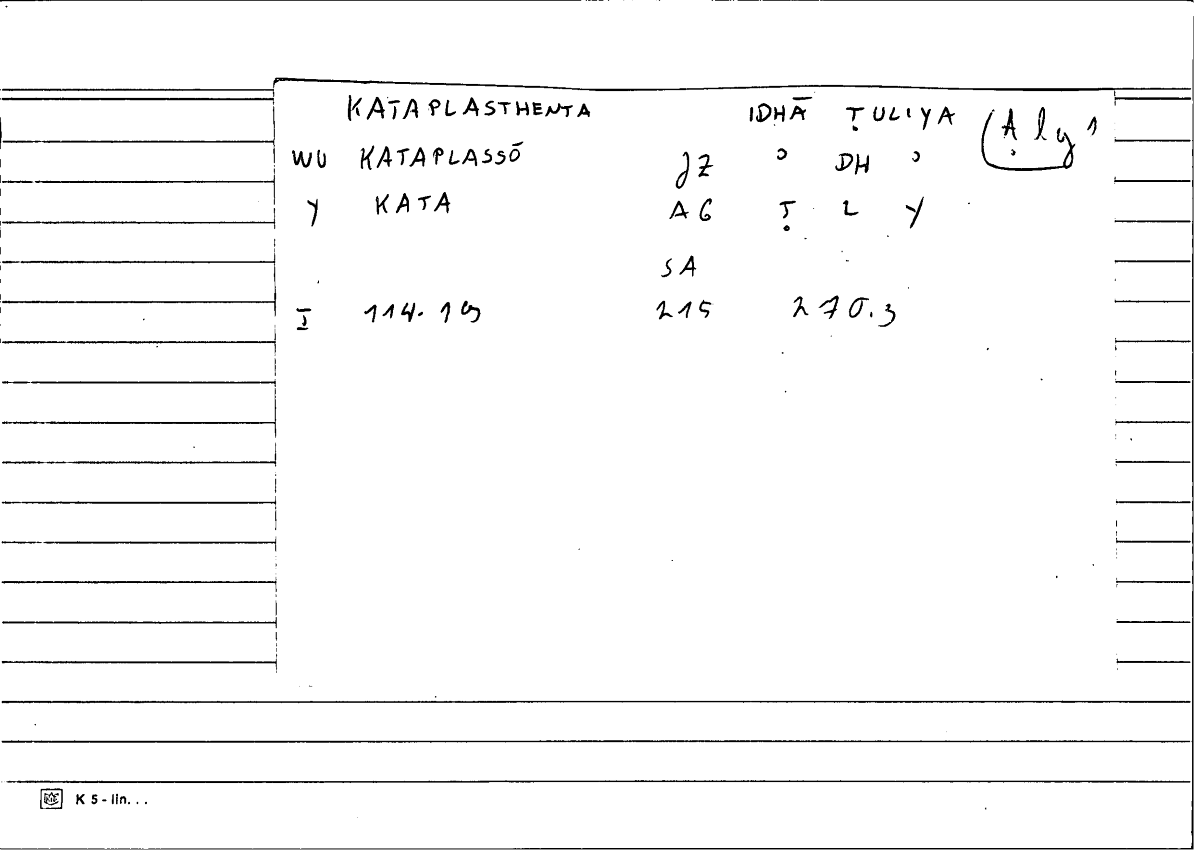 KATAPLASTHENTA IDHĀ ṬULIYA Ạly 1
WU KATAPLASSŌ JZ ʾ DH ʾ
Y KATA AG Ṭ L Y
SA
I 114.19 215 270.3
K 5 - lin. . .